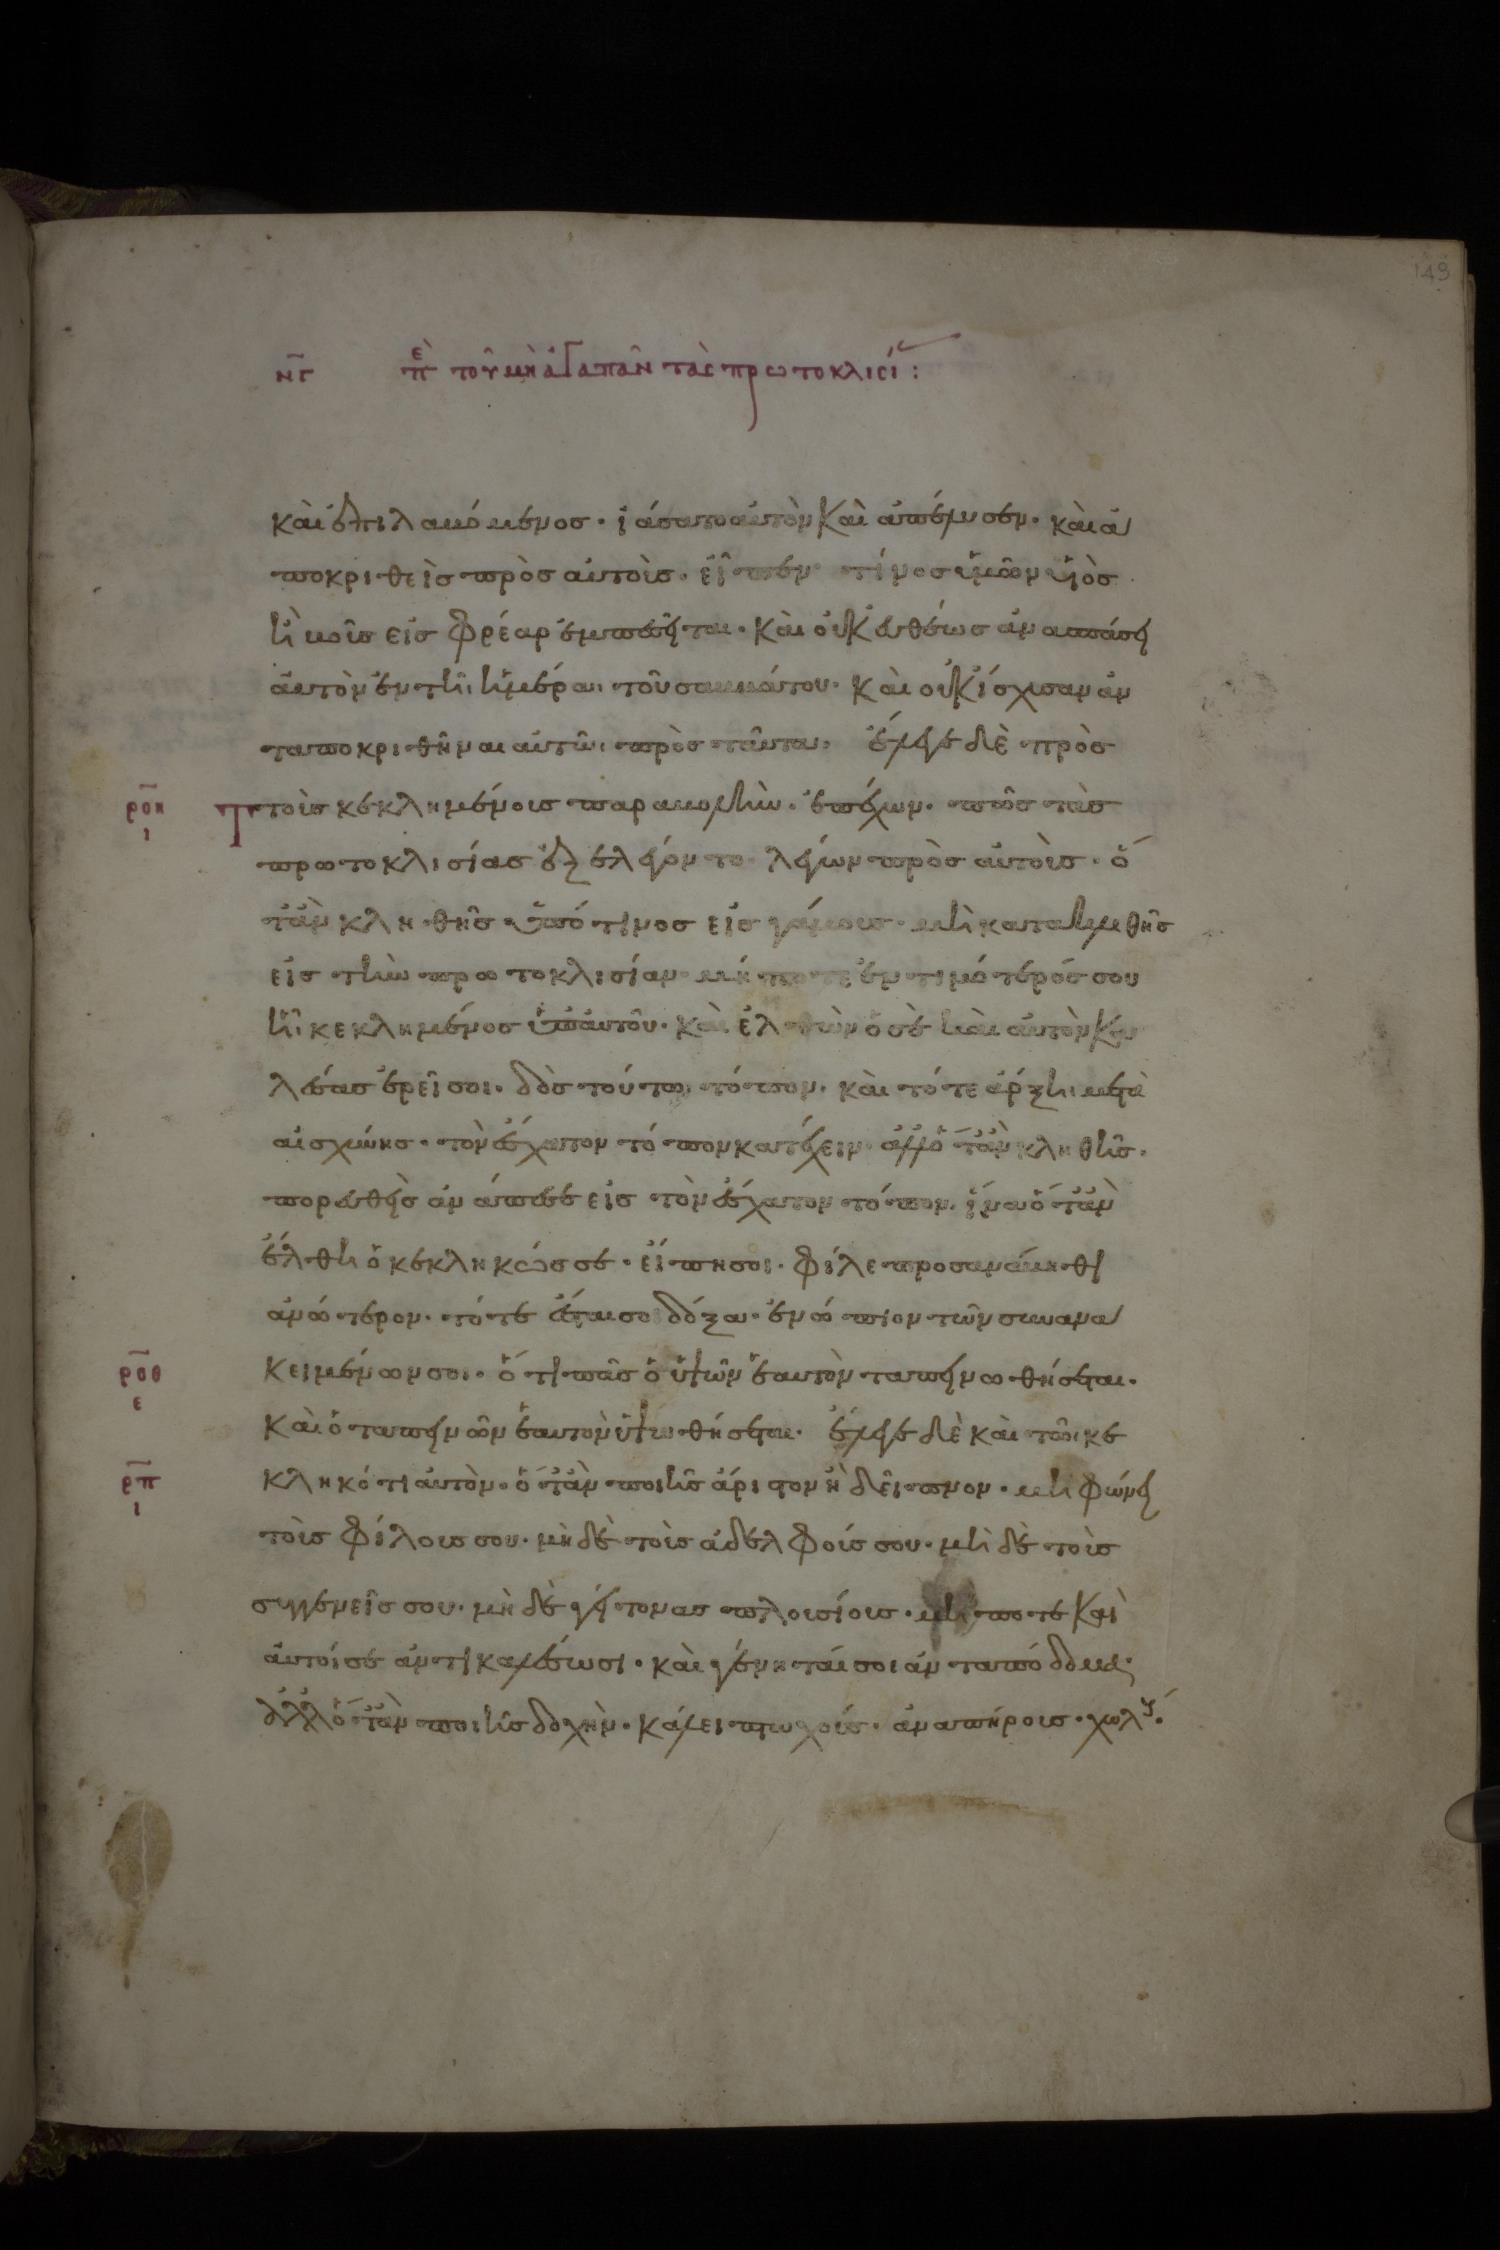 149
νγ πε τοῦ μὴ ἀγαπᾶν τὰς πρωτοκλισί :
καὶ ἐπιλαβόμενος · ἰάσατο αὐτὸν καὶ ἀπέλυσεν · καὶ ἀ
ποκριθεὶς πρὸς αὐτοὺς · εἶπεν τίνος ὑμῶν υἱὸς
ἢ βοῦς εἰς φρέαρ ἐμπεσεῖται · καὶ οὐκ εὐθέως ἀνασπάσει
αὐτὸν ἐν τῆι ἡμέραι τοῦ σαββάτου · καὶ οὐκ ἴσχυσαν ἀν
ταποκριθῆναι αὐτῶι πρὸς ταῦτα · ἔλεγε δὲ πρὸς
ροη ι τοὺς κεκλημένους παραβολὴν · ἐπέχων · πῶς τὰς
πρωτοκλισίας ἐξελέγοντο λέγων πρὸς αὐτοὺς · ὅ
τἂν κληθῆς ὑπό τινος εἰς γάμους · μὴ κατακλιθῆς
εἰς τὴν πρωτοκλισίαν · μήποτε ἐντιμότερός σου
ἦ κεκλημένος ὑπ αὐτοῦ · καὶ ἐλθὼν ὁ σὲ καὶ αὐτὸν κα
λέσας ἐρεῖ σοι · δὸς τούτω τόπον · καὶ τότε ἄρξη μετὰ
αἰσχύνης · τὸν ἔσχατον τόπον κατέχειν · ἀλλ ὅταν κληθῆς ·
πορευθεὶς ἀνάπεσε εἰς τὸν ἔσχατον τόπον · ἵνα ὅταν
ἔλθη ὁ κεκληκώς σε · εἴπη σοι · φίλε προσανάβηθι
ἀνώτερον · τότε ἔσται σοι δόξα · ἐνώπιον τῶν συνανα
ροθ ε κειμένων σοι · ὅτι πᾶς ὁ ὑψῶν ἑαυτὸν ταπεινωθήσεται ·
καὶ ὁ ταπεινῶν ἑαυτὸν ὑψωθήσεται · ἔλεγε δὲ καὶ τῶι κε
ρπ ι κληκότι αὐτὸν · ὅταν ποιῆς ἄριστον ἢ δεῖπνον · μὴ φώνει
τοὺς φίλους σου · μὴ δὲ τοὺς ἀδελφούς σου · μὴ δὲ τοὺς
συγγενεῖς σου · μὴ δὲ γείτονας πλουσίους · μήποτε καὶ
αὐτοί σε ἀντικαλέσωσι · καὶ γένηταί σοι ἀνταπόδομα ·
ἀλλ ὅταν ποιῆς δοχὴν · κάλει πτωχούς · ἀναπήρους · χωλού ·